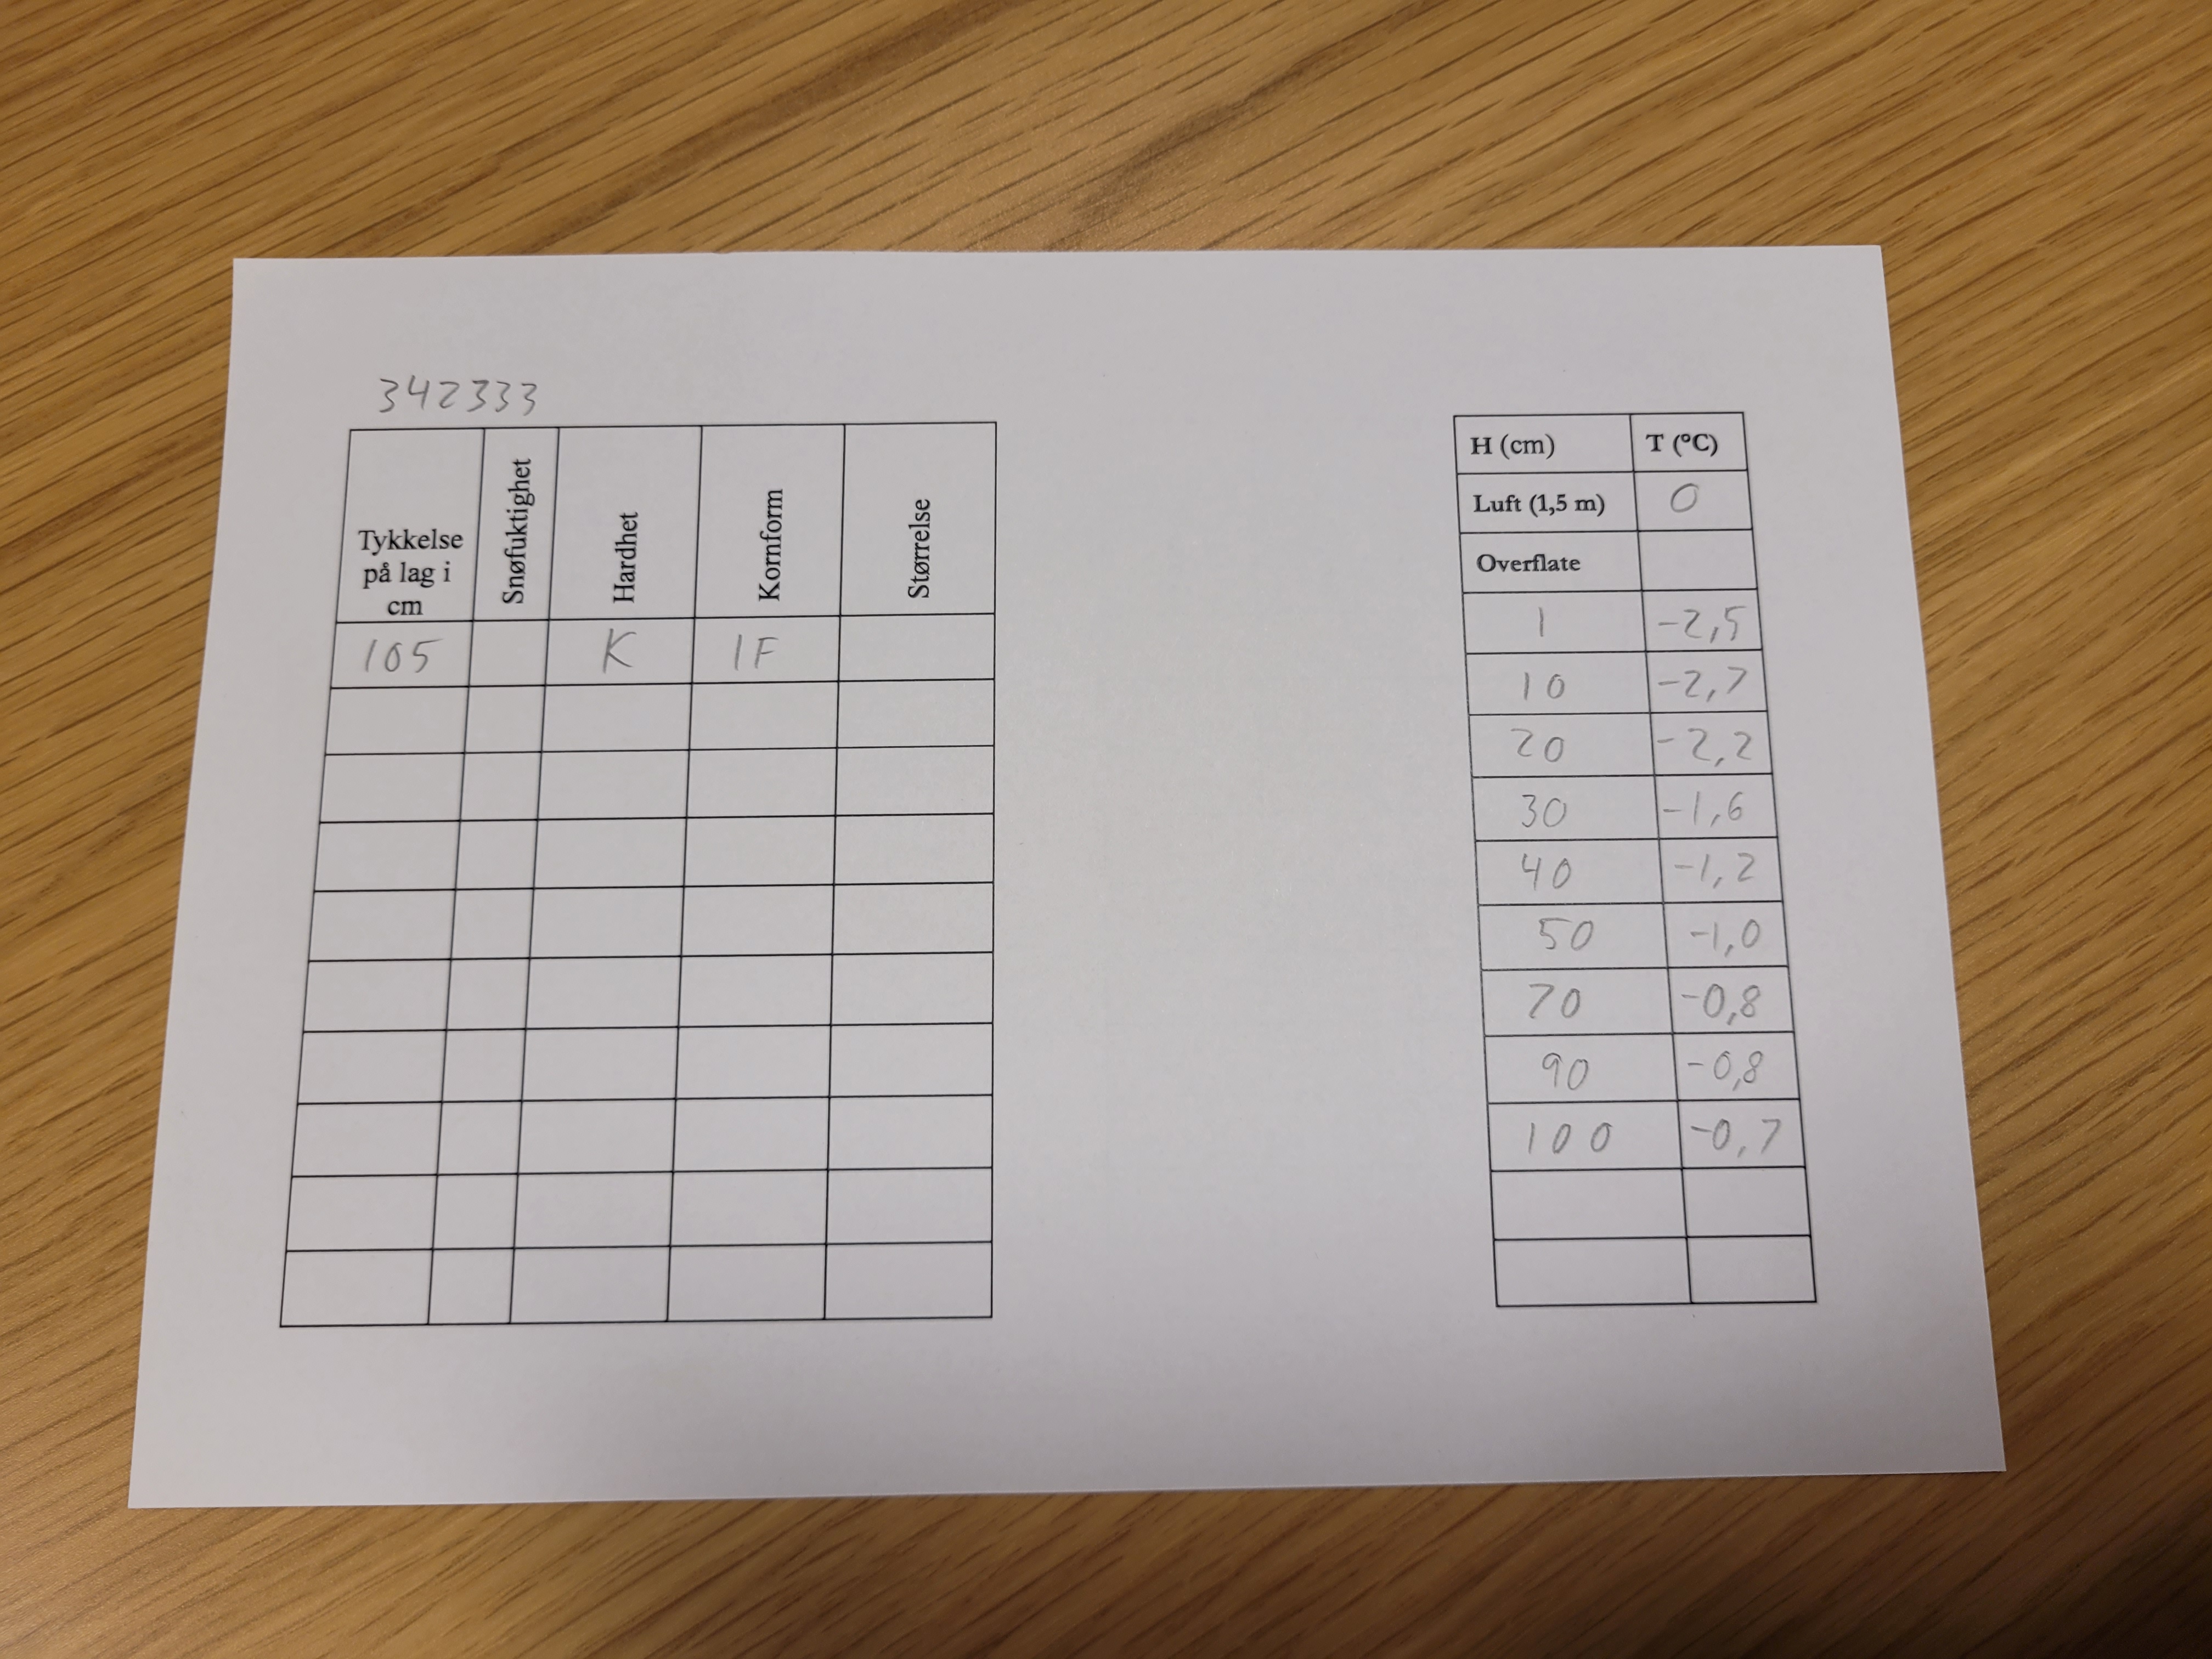 342333
Tykkelse på lag i cm Snøfuktighet Hardhet Kornform Størrelse
105 K IF
H (cm) T (°C)
Luft (1,5 m) 0
Overflate
1 -2,5
10 -2,7
20 -2,2
30 -1,6
40 -1,2
50 -1,0
70 -0,8
90 -0,8
100 -0,7